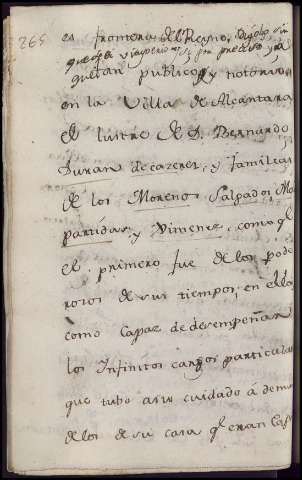 265
es frontera del Reyno, Digolo sin
que sea vituperio, y sin precio, y la
quedan publico, y notorio
en la Villa de Alcantara
el lustre de D. Bernardo
Duran de cazeres, y familias
de los Morenos Salgados, Mo
partidas, y Ximenez, como q̃
el primero fue de los pode
rosos de sus tiempos, en ello
como Capaz de desempeñar
los Infinitos cargos particulares
que tubo asu cuidado á demas
de los de su casa q̃ eran